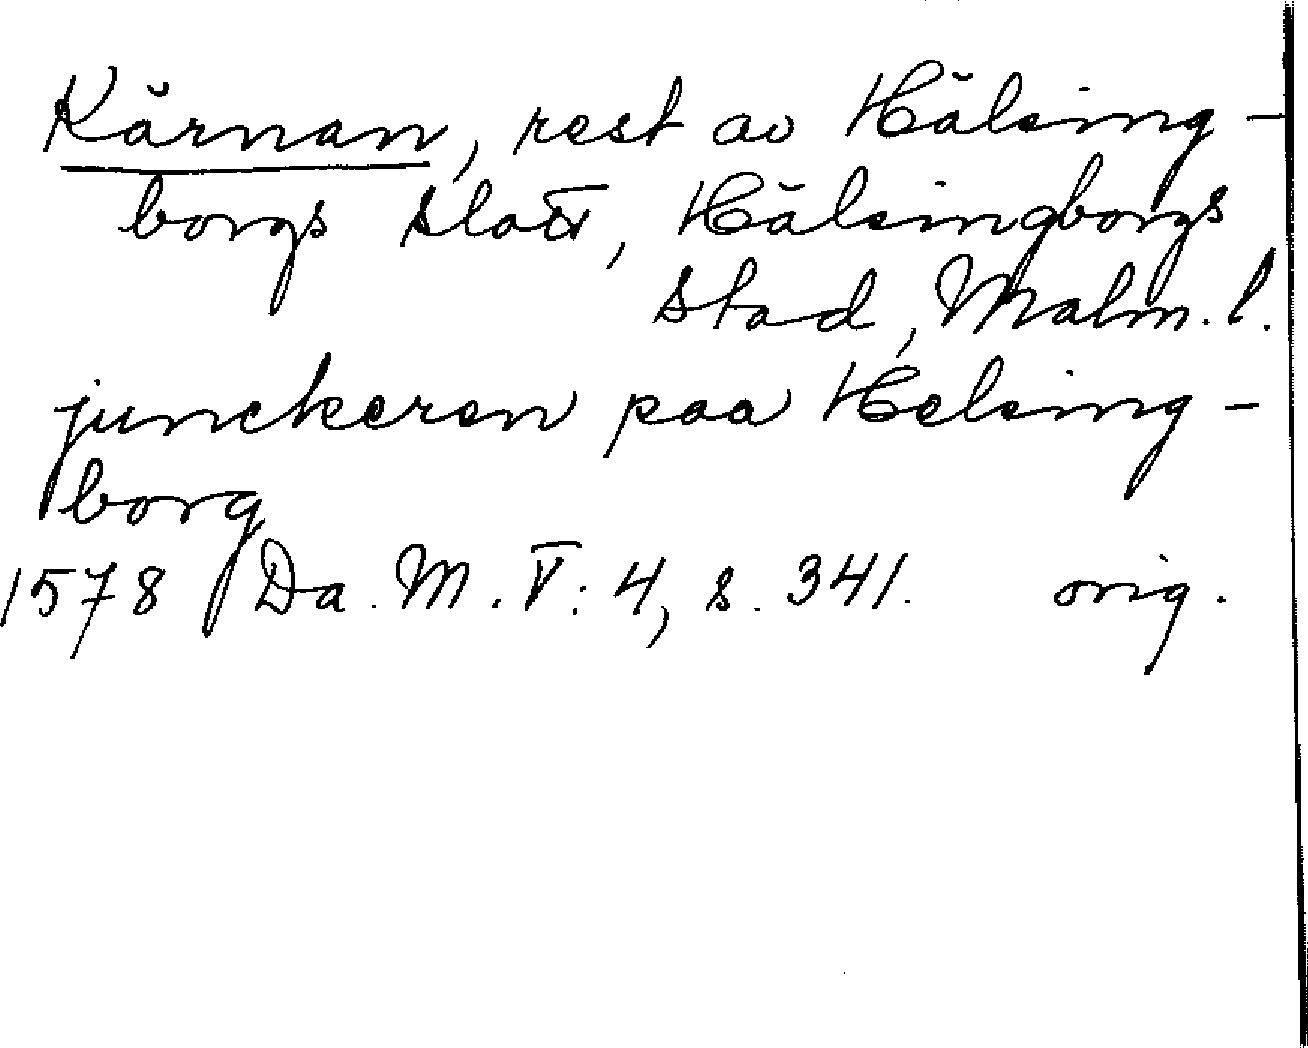 Kärnan, rest av Hälsing-
borgs slott, Hälsingborgs
stad, Malm. l.
junckeren paa Helsing-
borg
1578 Da. M. V: 4, s. 341. orig.